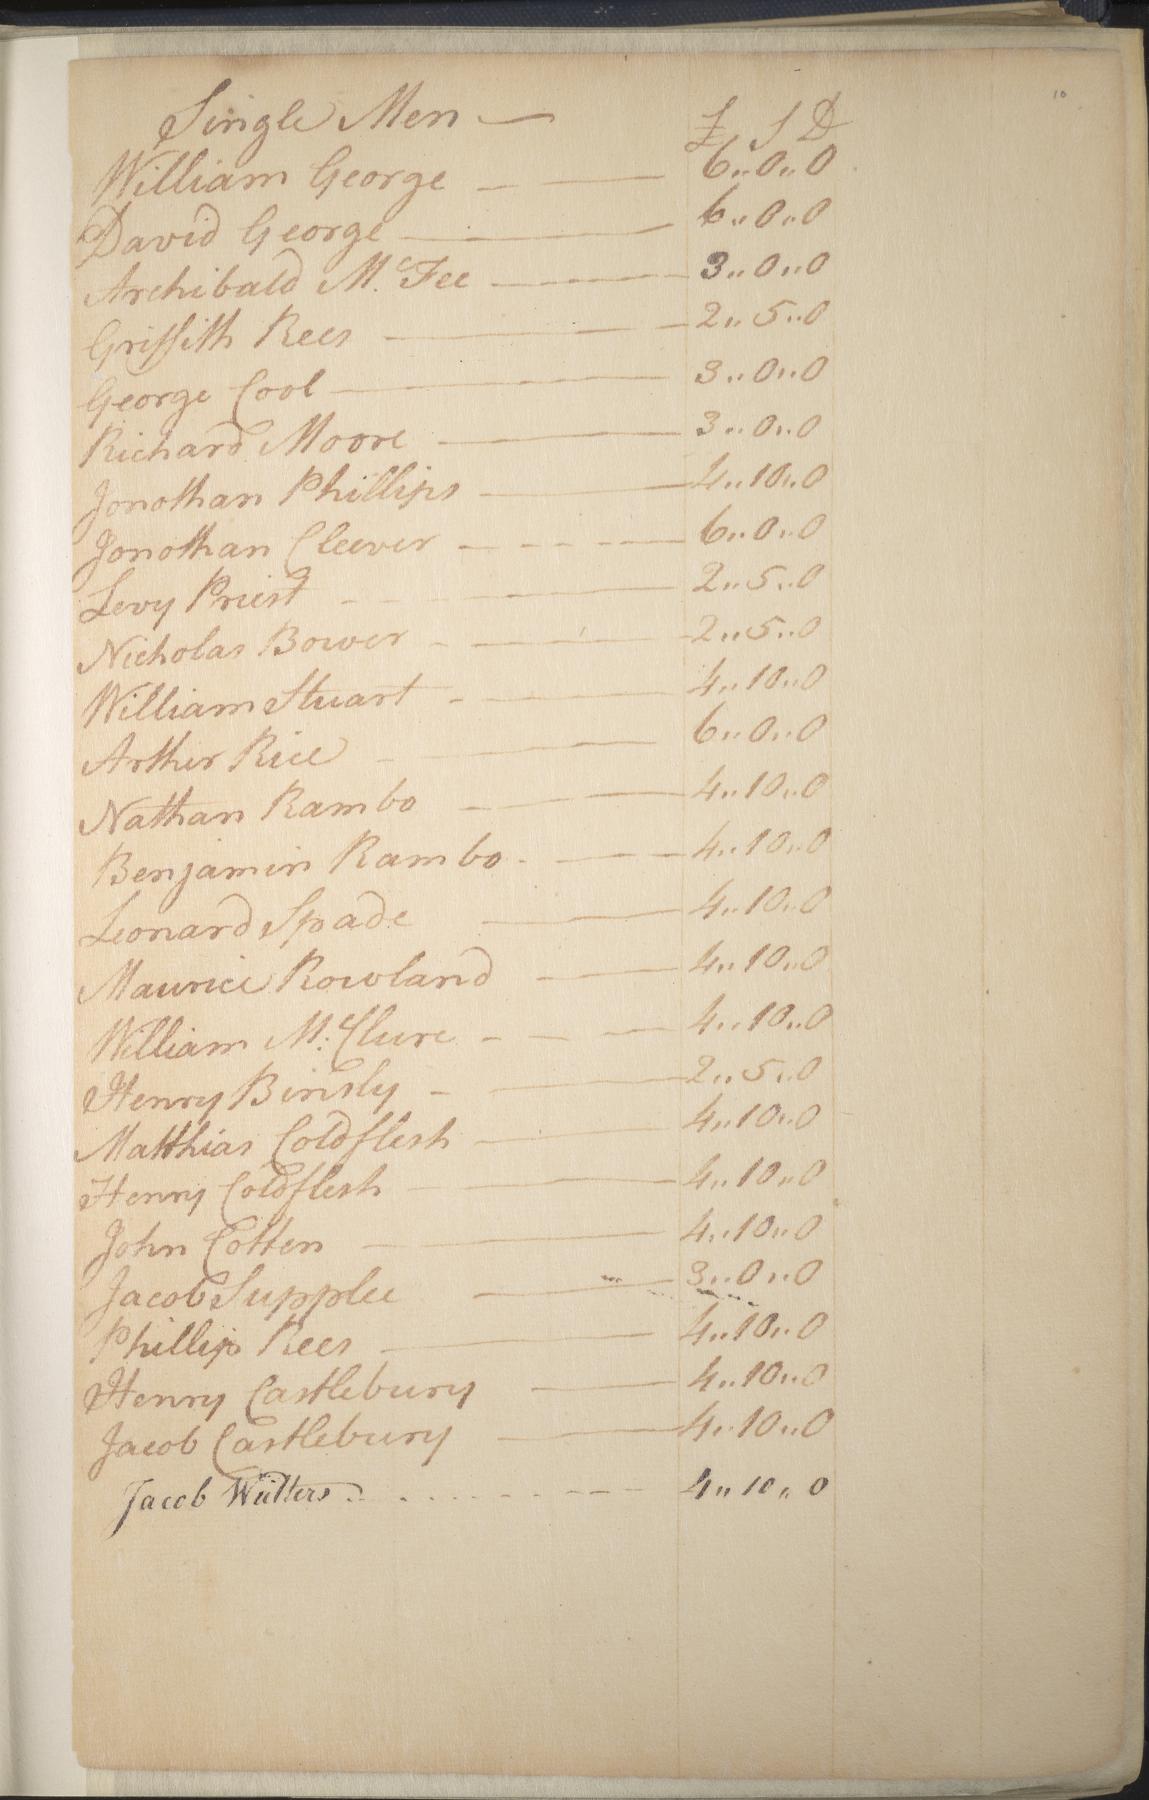 10
Single Men — £ S D
William George — — 6..0..0
David George — 6..0..0
Archibald Mc. Fee — 3..0..0
Griffith Rees — 2..5..0
George Cool — 3..0..0
Richard Moore — 3..0..0
Jonothan Phillips — 4..10..0
Jonothan Cleever — 6..0..0
Levy Priest — 2..5..0
Nicholas Bower — 2..5..0
William Stuart — 4..10..0
Arther Rice — 6..0..0
Nathan Rambo — 4..10..0
Benjamin Rambo — 4..10..0
Leonard Spade — 4..10..0
Maurice Rowland — 4..10..0
William Mc:Clure — 4..10..0
Henry Binsly — 2..5..0
Matthias Coldflesh — 4..10..0
Henry Coldflesh — 4..10..0
John Cotten — 4..10..0
Jacob Supplee — 3..0..0
Phillip Rees — 4..10..0
Henry Castlebury — 4..10..0
Jacob Castlebury — 4..10..0
Jacob — 4..10..0